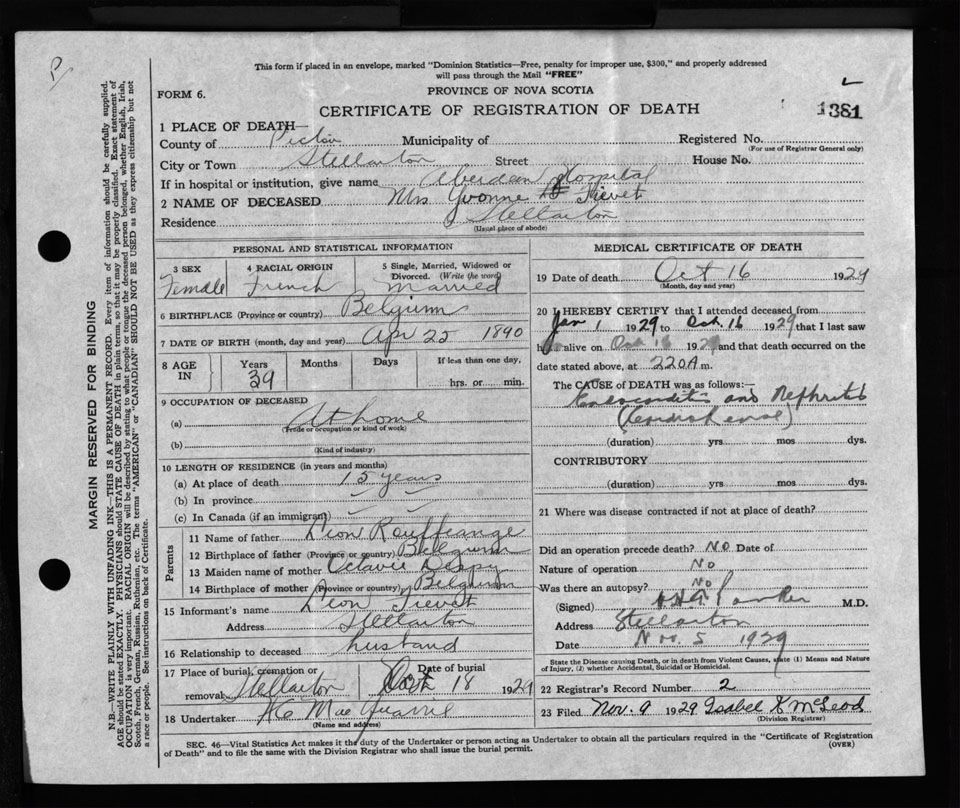 This form if placed in an envelope, marked "Dominion Statistics—Free, penalty for improper use, $300," and properly addressed
will pass through the Mail "FREE"
FORM 6.
PROVINCE OF NOVA SCOTIA
CERTIFICATE OF REGISTRATION OF DEATH
1381
1 PLACE OF DEATH—
County of Pictou Municipality of Registered No.
(For use of Registrar General only)
City or Town Stellarton Street House No.
If in hospital or institution, give name Aberdeen Hospital
2 NAME OF DECEASED Mrs. Yvonne Tievet
Residence Stellarton
(Usual place of abode)
MARGIN RESERVED FOR BINDING
N.B.—WRITE PLAINLY WITH UNFADING INK—THIS IS A PERMANENT RECORD. Every item of information should be carefully supplied.
AGE should be stated EXACTLY. PHYSICIANS should STATE CAUSE OF DEATH in plain terms, so that it may be properly classified. Exact statement of
OCCUPATION is very important. RACIAL ORIGIN will be described by stating to what people or tongue the deceased person belonged, whether English, Irish,
Scotch, French, German, Russian, Ruthenian, etc. The terms "AMERICAN" or "CANADIAN" SHOULD NOT BE USED as they express citizenship but not
a race or people. See instructions on back of Certificate.
PERSONAL AND STATISTICAL INFORMATION
3 SEX 4 RACIAL ORIGIN 5 Single, Married, Widowed or
Divorced. (Write the word)
Female French Married
6 BIRTHPLACE (Province or country) Belgium
7 DATE OF BIRTH (month, day and year) Apr 25 1890
8 AGE IN Years Months Days If less than one day,
39 hrs. or min.
9 OCCUPATION OF DECEASED
(a) At home
(Trade or occupation or kind of work)
(b)
(Kind of industry)
10 LENGTH OF RESIDENCE (in years and months)
(a) At place of death 15 years
(b) In province
(c) In Canada (if an immigrant)
Parents
11 Name of father Leon
12 Birthplace of father (Province or country) Belgium
13 Maiden name of mother Octavie
14 Birthplace of mother (Province or country) Belgium
15 Informant's name Leon Tievet
Address Stellarton
16 Relationship to deceased husband
17 Place of burial, cremation or Date of burial
removal Stellarton Oct 18 1929
18 Undertaker
(Name and address)
MEDICAL CERTIFICATE OF DEATH
19 Date of death Oct 16 1929
(Month, day and year)
20 I HEREBY CERTIFY that I attended deceased from
Jan 1 1929 to Oct. 16 1929 that I last saw
h alive on Oct 16 1929 and that death occurred on the
date stated above, at 220A m.
The CAUSE of DEATH was as follows:—
Endocarditis and Nephritis
(duration) yrs mos dys.
CONTRIBUTORY
(duration) yrs. mos. dys.
21 Where was disease contracted if not at place of death?
Did an operation precede death? No Date of
Nature of operation No
Was there an autopsy? No
(Signed) M.D.
Address Stellarton
Date Nov. 5 1929
State the Disease causing Death, or in death from Violent Causes, state (1) Means and Nature
of Injury, (2) whether Accidental, Suicidal or Homicidal.
22 Registrar's Record Number 2
23 Filed Nov. 9 1929 Isabel McLeod
(Division Registrar)
SEC. 46—Vital Statistics Act makes it the duty of the Undertaker or person acting as Undertaker to obtain all the particulars required in the "Certificate of Registration
of Death" and to file the same with the Division Registrar who shall issue the burial permit. (OVER)